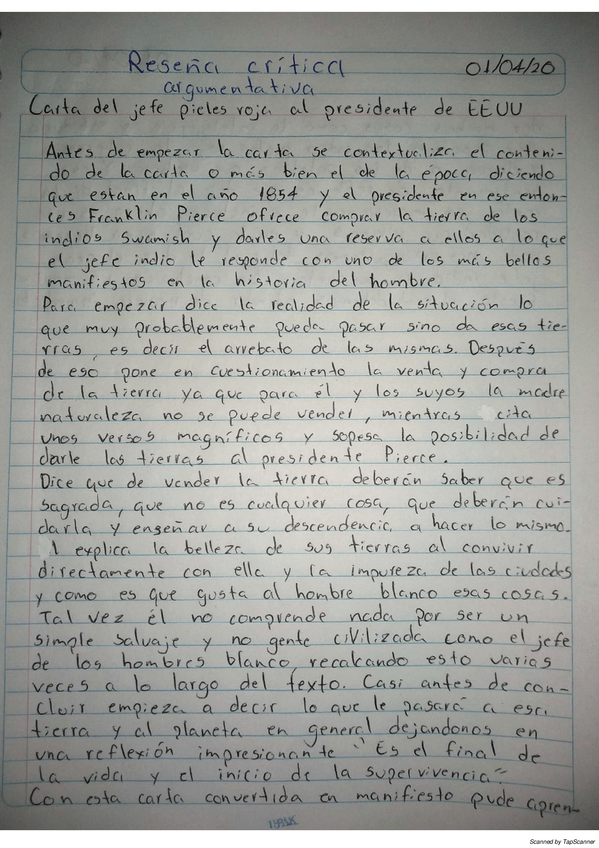 Reseña crítica 01/04/20
argumentativa
Carta del jefe pieles roja al presidente de EEUU
Antes de empezar la carta se contextualiza el conteni-
do de la carta o más bien el de la época, diciendo
que estan en el año 1854 y el presidente en ese enton-
ces Franklin Pierce ofrece comprar la tierra de los
indios Swamish y darles una reserva a ellos a lo que
el jefe indio le responde con uno de los más bellos
manifiestos en la historia del hombre.
Para empezar dice la realidad de la situación lo
que muy probablemente pueda pasar sino da esas tie-
rras, es decir el arrebato de las mismas. Después
de eso pone en cuestionamiento la venta y compra
de la tierra ya que para él y los suyos la madre
naturaleza no se puede vender, mientras cita
unos versos magníficos y sopesa la posibilidad de
darle las tierras al presidente Pierce.
Dice que de vender la tierra deberán saber que es
sagrada, que no es cualquier cosa, que deberán cui-
darla y enseñar a su descendencia a hacer lo mismo.
explica la belleza de sus tierras al convivir
directamente con ella y la impureza de las ciudades
y como es que gusta al hombre blanco esas cosas.
Tal vez él no comprende nada por ser un
simple salvaje y no gente civilizada como el jefe
de los hombres blanco, recalcando esto varias
veces a lo largo del texto. Casi antes de con-
cluir empieza a decir lo que le pasará a esa
tierra y al planeta en general dejandonos en
una reflexión impresionante "Es el final de
la vida y el inicio de la supervivencia"
Con esta carta convertida en manifiesto pude apren-
Scanned by TapScanner